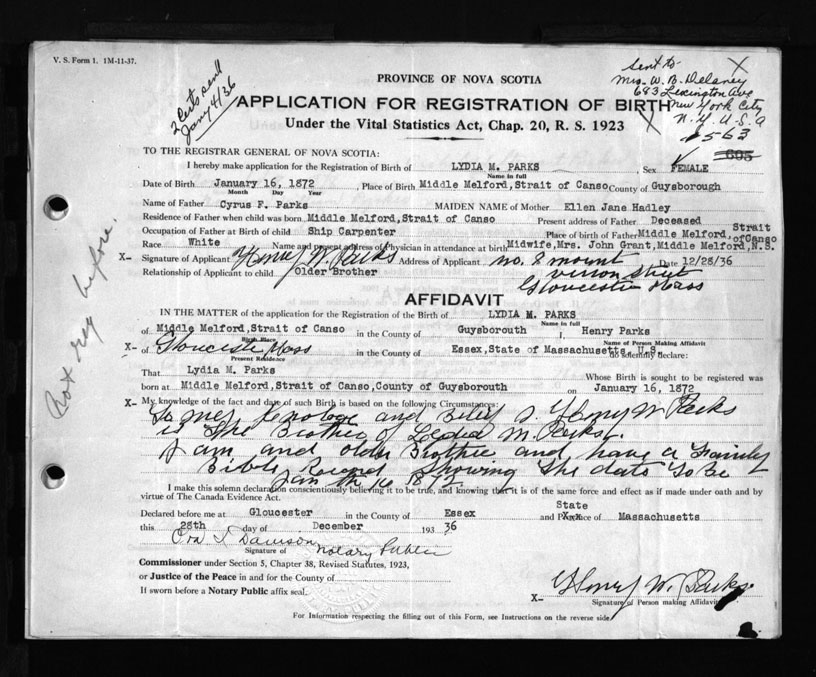 V. S. Form 1. 1M-11-37.
2 Certs sent
Jany 4/36
sent to
Mrs. W. B. Delaney
683 Lexington Ave
New York City
N. Y. U. S. A
563
605
PROVINCE OF NOVA SCOTIA
APPLICATION FOR REGISTRATION OF BIRTH
Under the Vital Statistics Act, Chap. 20, R. S. 1923
TO THE REGISTRAR GENERAL OF NOVA SCOTIA:
I hereby make application for the Registration of Birth of LYDIA M. PARKS Sex FEMALE
Name in full
Date of Birth January 16, 1872, Place of Birth Middle Melford,Strait of Canso County of Guysborough
Month Day Year
Name of Father Cyrus F. Parks MAIDEN NAME of Mother Ellen Jane Hadley
Residence of Father when child was born Middle Melford,Strait of Canso Present address of Father Deceased
Occupation of Father at Birth of child Ship Carpenter Place of birth of Father Middle Melford, Strait of Canso
Race White Name and present address of Physician in attendance at birth Midwife, Mrs. John Grant, Middle Melford, N.S.
X- Signature of Applicant Henry W. Parks Address of Applicant no. 8 mount Date 12/28/36
Relationship of Applicant to child Older Brother vernon street
Gloucester Mass
Not reg before.
AFFIDAVIT
IN THE MATTER of the application for the Registration of the Birth of LYDIA M. PARKS
Name in full
of Middle Melford,Strait of Canso in the County of Guysborouth I, Henry Parks
Birth Place Name of Person Making Affidavit
X- of Gloucester Mass in the County of Essex,State of Massachusetts, U.S do solemnly declare:
Present Residence
That Lydia M. Parks Whose Birth is sought to be registered was
born at Middle Melford,Strait of Canso,County of Guysborouth on January 16, 1872
X- My knowledge of the fact and date of such Birth is based on the following Circumstances:
To my and I. Henry W Parks
is the Brother of Lydia M. Parks.
I am and older Brothie and have a Family
Bible Record showing the date To Be
Jan th 16 1872
I make this solemn declaration conscientiously believing it to be true, and knowing that it is of the same force and effect as if made under oath and by
virtue of The Canada Evidence Act.
Declared before me at Gloucester in the County of Essex and Province of State Massachusetts
this 28th day of December 193 36
Signature of Notary Public
Commissioner under Section 5, Chapter 38, Revised Statutes, 1923,
or Justice of the Peace in and for the County of
If sworn before a Notary Public affix seal.
X- Henry W. Parks
Signature of Person making Affidavit
For Information respecting the filling out of this Form, see Instructions on the reverse side